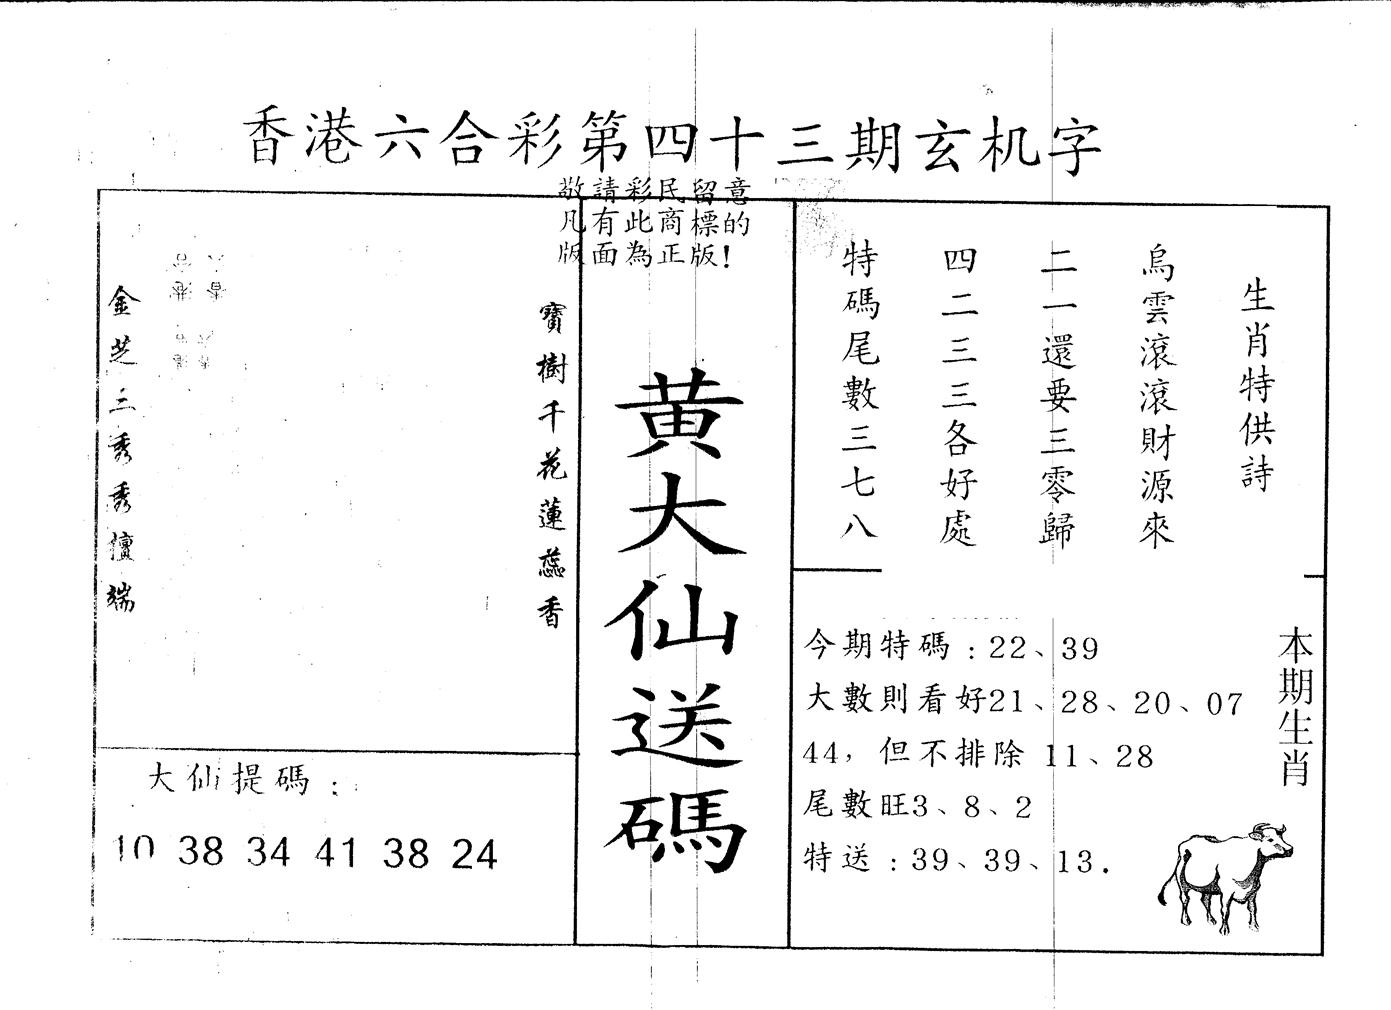 香港六合彩第四十三期玄机字
敬請彩民留意
凡有此商標的
版面為正版!
生肖特供詩
烏雲滾滾財源來
二一還要三零歸
四二三三各好處
特碼尾數三七八
黄大仙送碼
寶樹千花蓮蕊香
金芝三秀秀僮端
大仙提碼：
10 38 34 41 38 24
本期生肖
今期特碼：22、39
大數則看好21、28、20、07
44，但不排除 11、28
尾數旺3、8、2
特送：39、39、13．